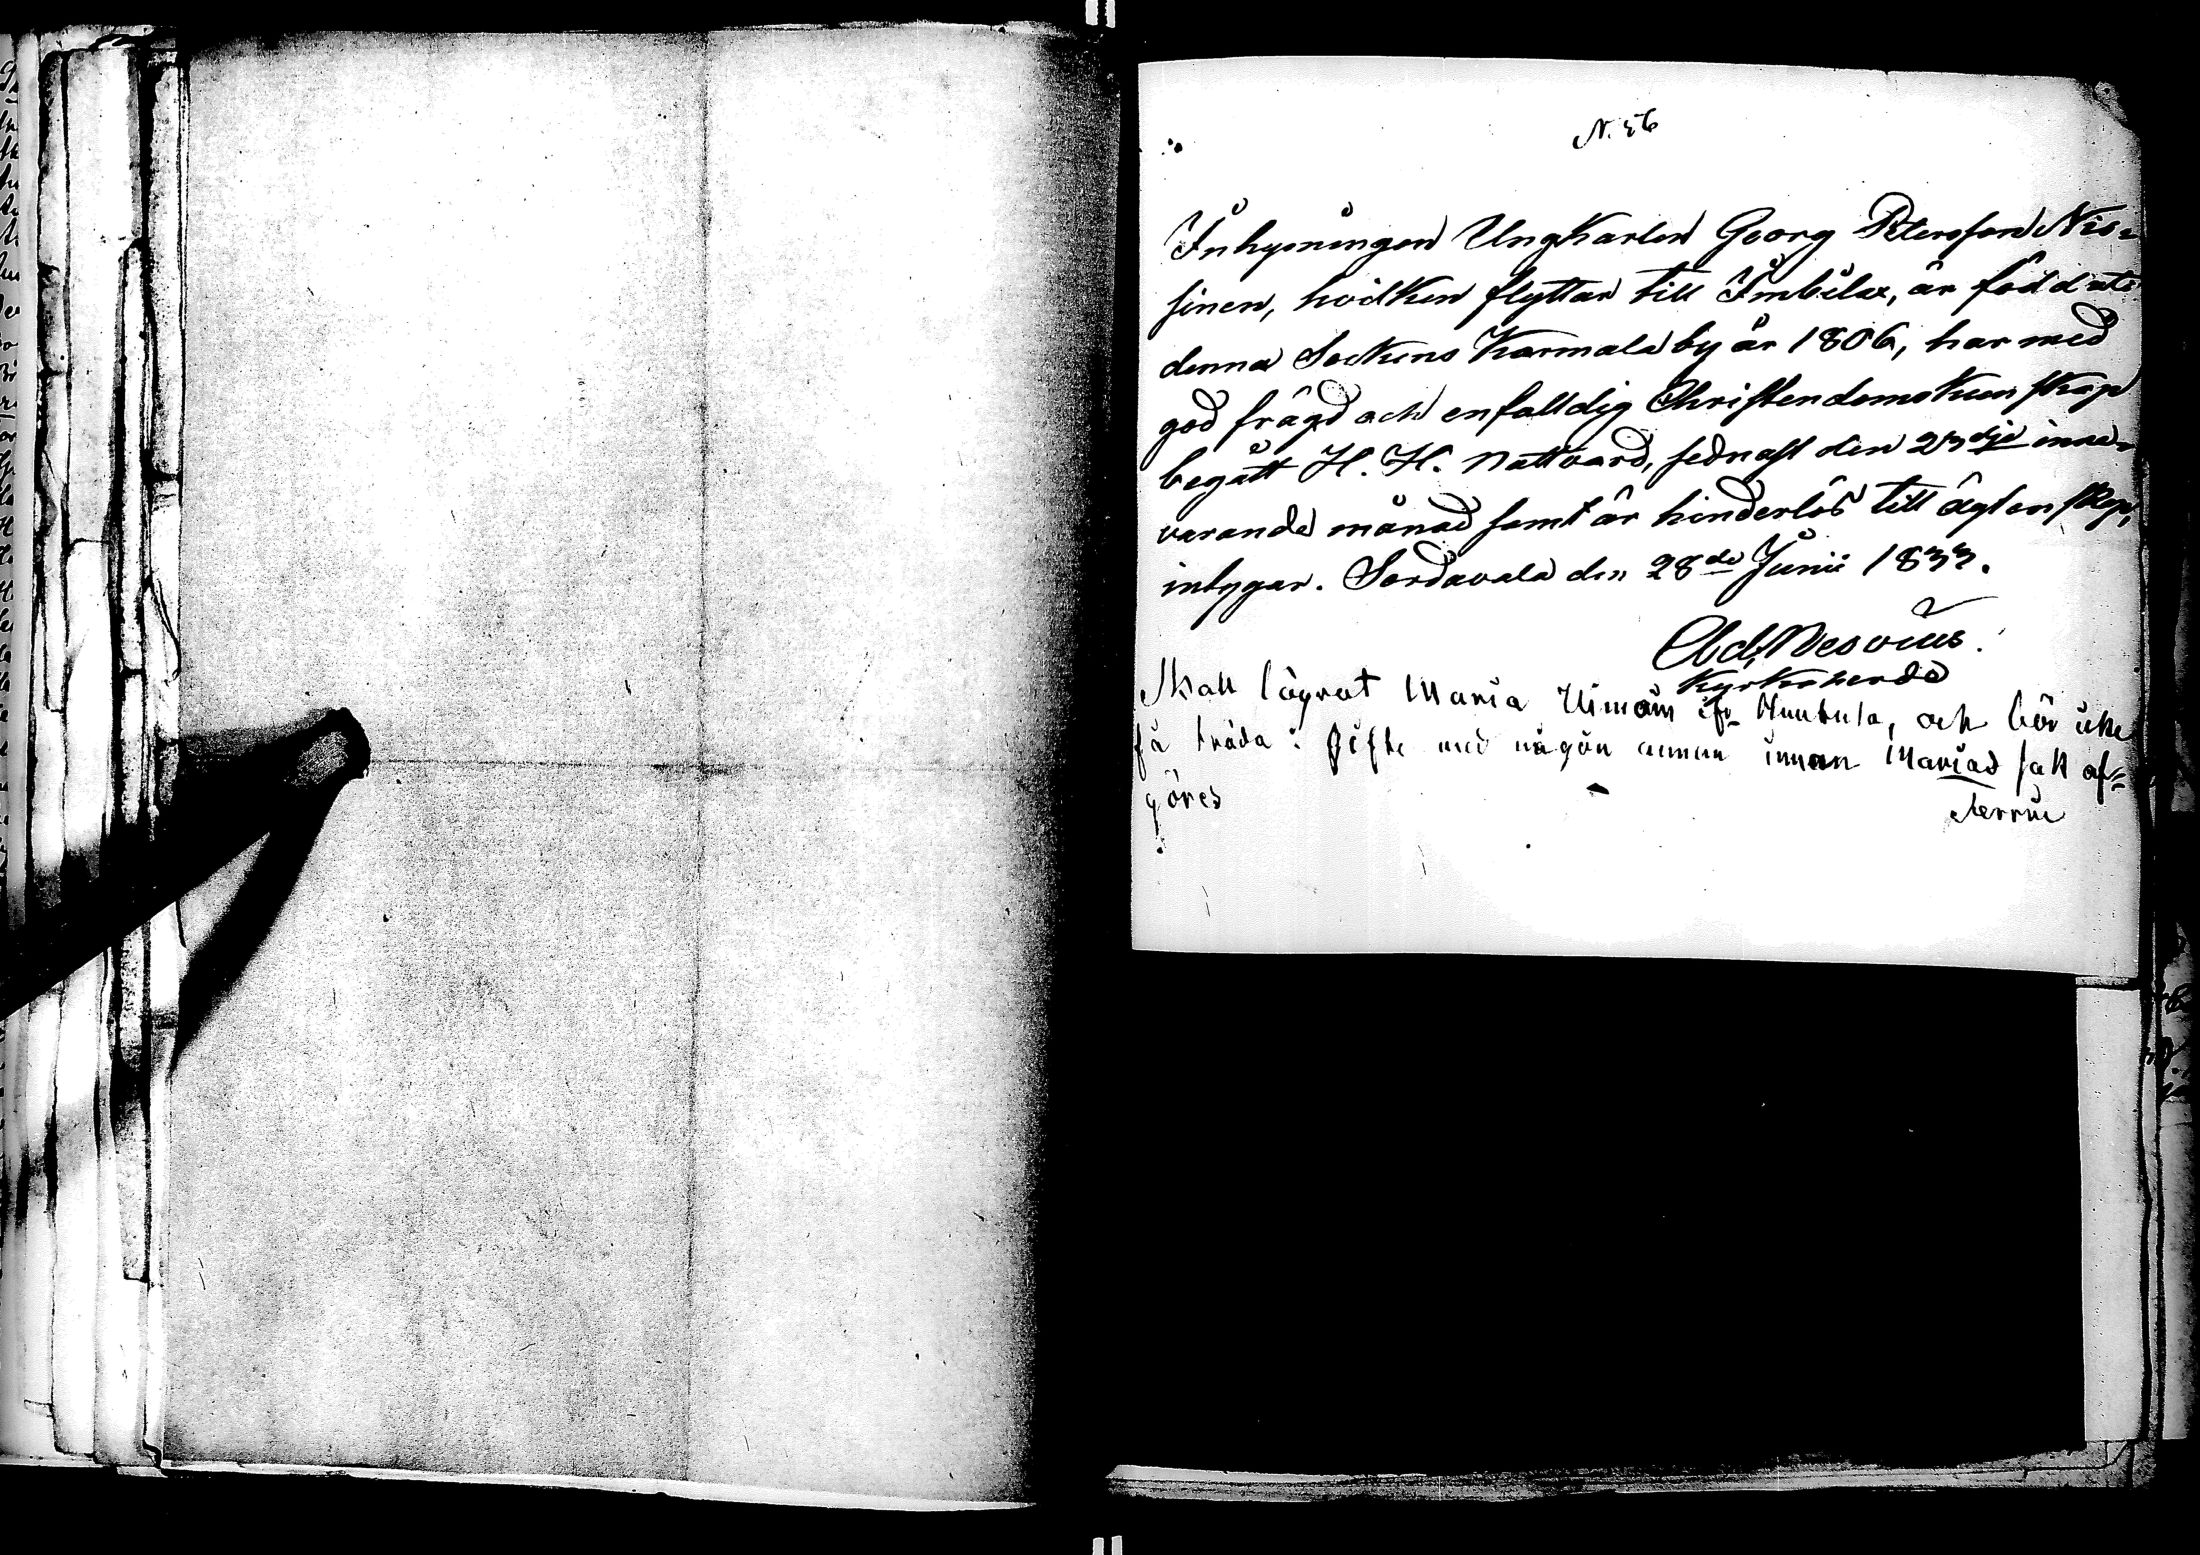 N. 56
Inhysningen Ungkarlen Georg Petersson Nis-
sinen, hvilken flyttar till Imbilax, är född uti
denna Sockens Karmala by år 1806, har med
god frägd och enfalldig Christendomskunskap
begått H. H. Nattvard, sednast den 23dje inne-
varande månad samt är hinderlös till ägtenskap,
intygar. Sordavala den 28de Junii 1833.
Kyrkoherde
Skall lägrat Maria, och bör icke
få träda i gifte med någon annan innan Marias sak af-
göres